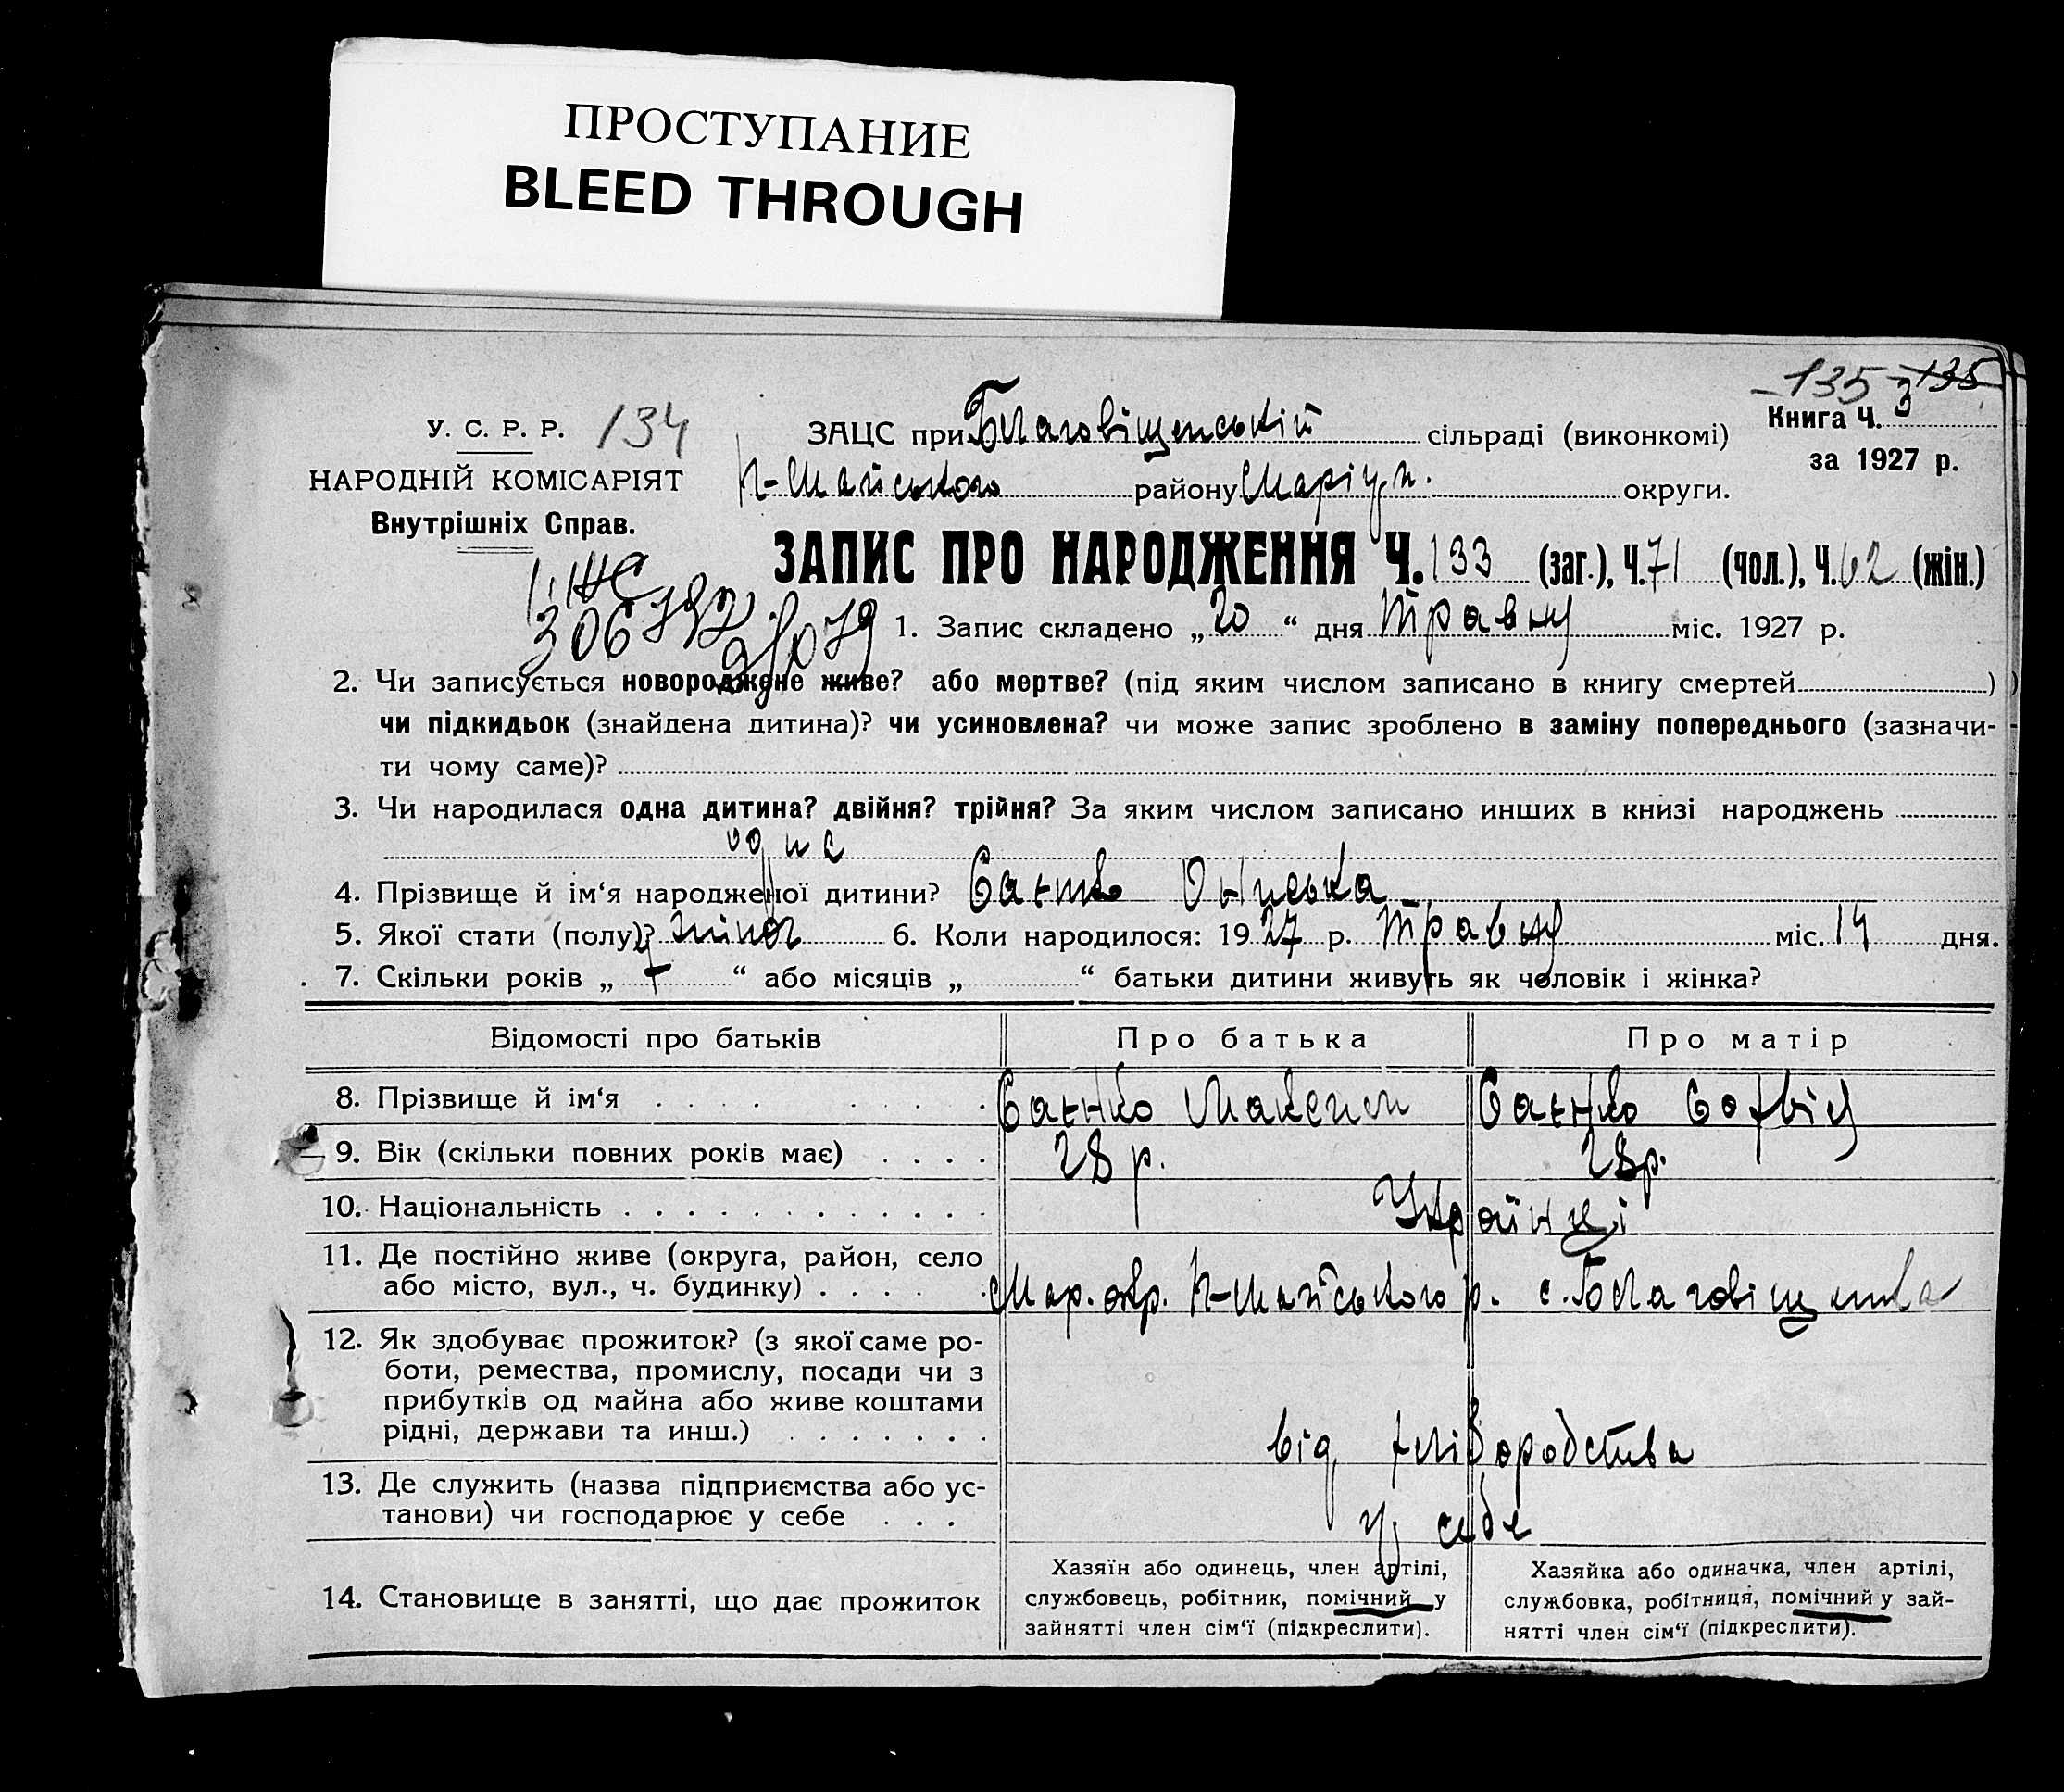 ПРОСТУПАНИЕ
BLEED THROUGH
135 3 135
У. С. Р. Р. 134
ЗАЦС при Благовіщенській сільраді (виконкомі) Книга Ч. 3
НАРОДНІЙ КОМІСАРІЯТ
П-Майського району Маріуп. округи. за 1927 р.
Внутрішніх Справ.
ЗАПИС ПРО НАРОДЖЕННЯ Ч. 133 (заг.), Ч. 71 (чол.), Ч. 62 (жін.)
1. Запис складено „ 20 “ дня Травня міс. 1927 р.
2. Чи записується новороджене живе? або мертве? (під яким числом записано в книгу смертей )
чи підкидьок (знайдена дитина)? чи усиновлена? чи може запис зроблено в заміну попереднього (зазначи-
ти чому саме)?
3. Чи народилася одна дитина? двійня? трійня? За яким числом записано инших в книзі народжень
одне
4. Прізвище й ім‘я народженої дитини? Саєнко Ониська
5. Якої стати (полу)? жіноч 6. Коли народилося: 1927 р. Травня міс. 14 дня.
7. Скільки років „ 7 “ або місяців „ “ батьки дитини живуть як чоловік і жінка?
Відомості про батьків Про батька Про матір
8. Прізвище й ім‘я Саєнко Максим Саєнко Софвія
9. Вік (скільки повних років має) 28 р. 28 р.
10. Національність Українці
11. Де постійно живе (округа, район, село
або місто, вул., ч. будинку) Мар. окр. П-Майського р. с. Благовіщенка
12. Як здобуває прожиток? (з якої саме ро-
боти, ремества, промислу, посади чи з
прибутків од майна або живе коштами
рідні, держави та инш.) від хліборобства
13. Де служить (назва підприємства або ус-
танови) чи господарює у себе у себе
14. Становище в занятті, що дає прожиток
Хазяїн або одинець, член артілі,
службовець, робітник, помічний у
зайнятті член сім‘ї (підкреслити).
Хазяйка або одиначка, член артілі,
службовка, робітниця, помічний у зай-
нятті член сім‘ї (підкреслити).